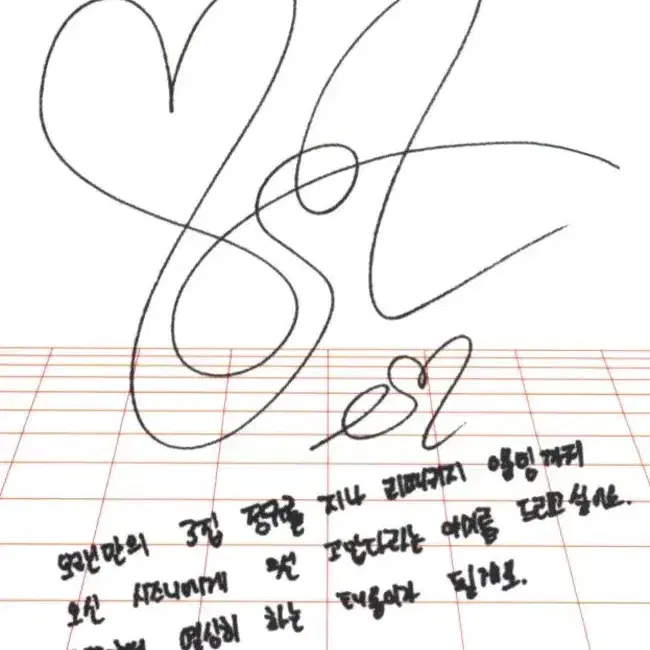 오랜만의 3집 정규를 지나 리패키지 앨범까지
오신 시즈니에게 우선 고맙다라는 이야기를 드리고 싶어요.
열심히 하는 태용이가 될게요.